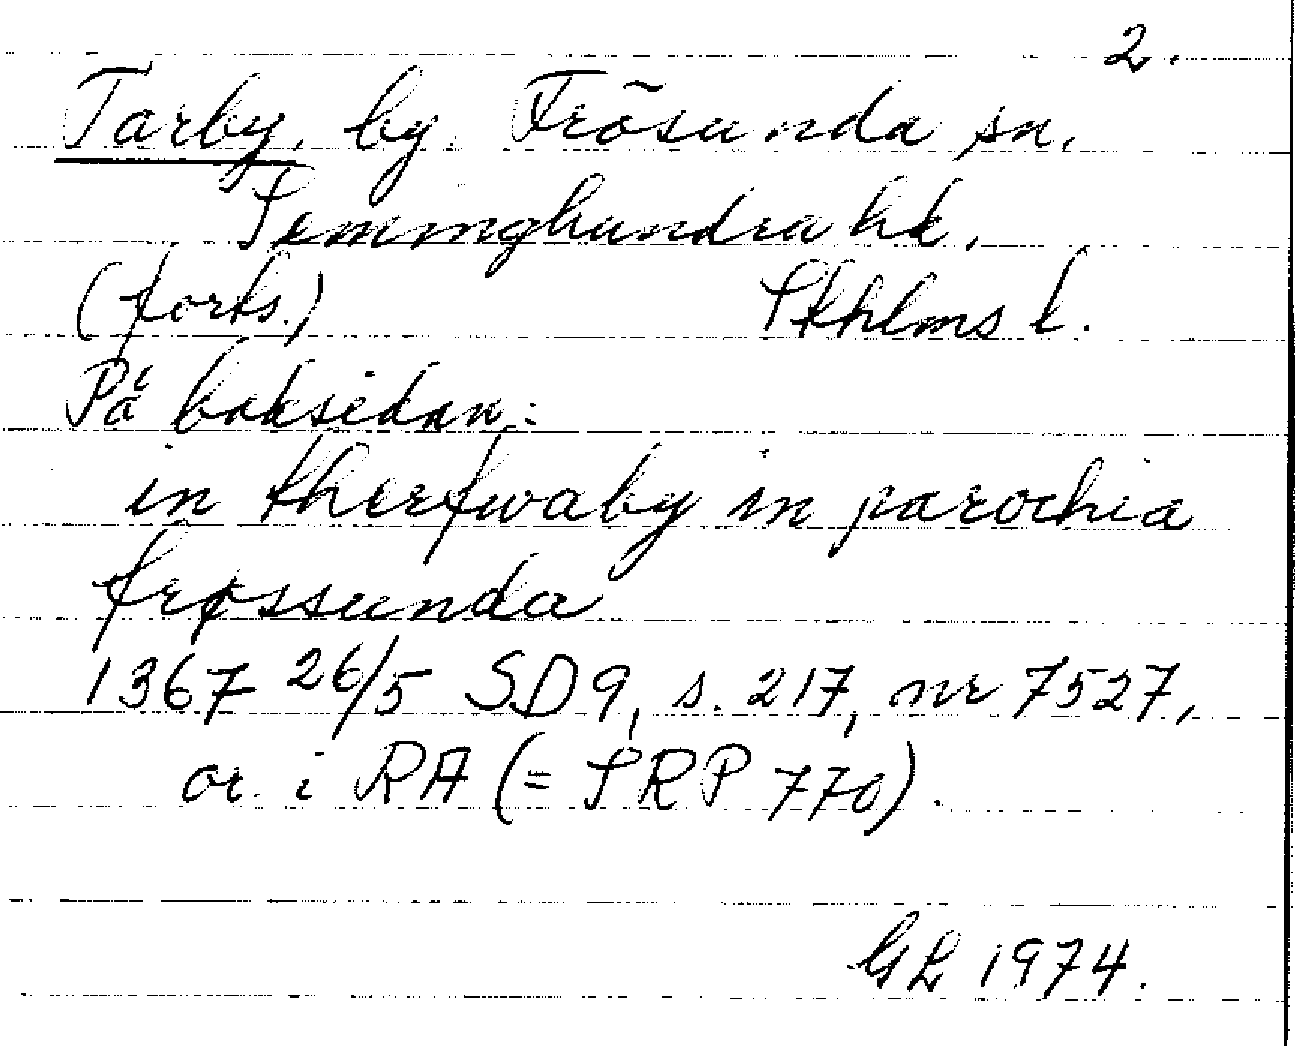 2.
Tarby, by, Frösunda sn,
Semminghundra hd,
(forts.) Sthlms l.
På baksidan:
in therfwaby in parochia
frøssunda
1367 26/5 SD 9, s. 217, nr 7527,
or. i RA (= SRP 770).
GL 1974.